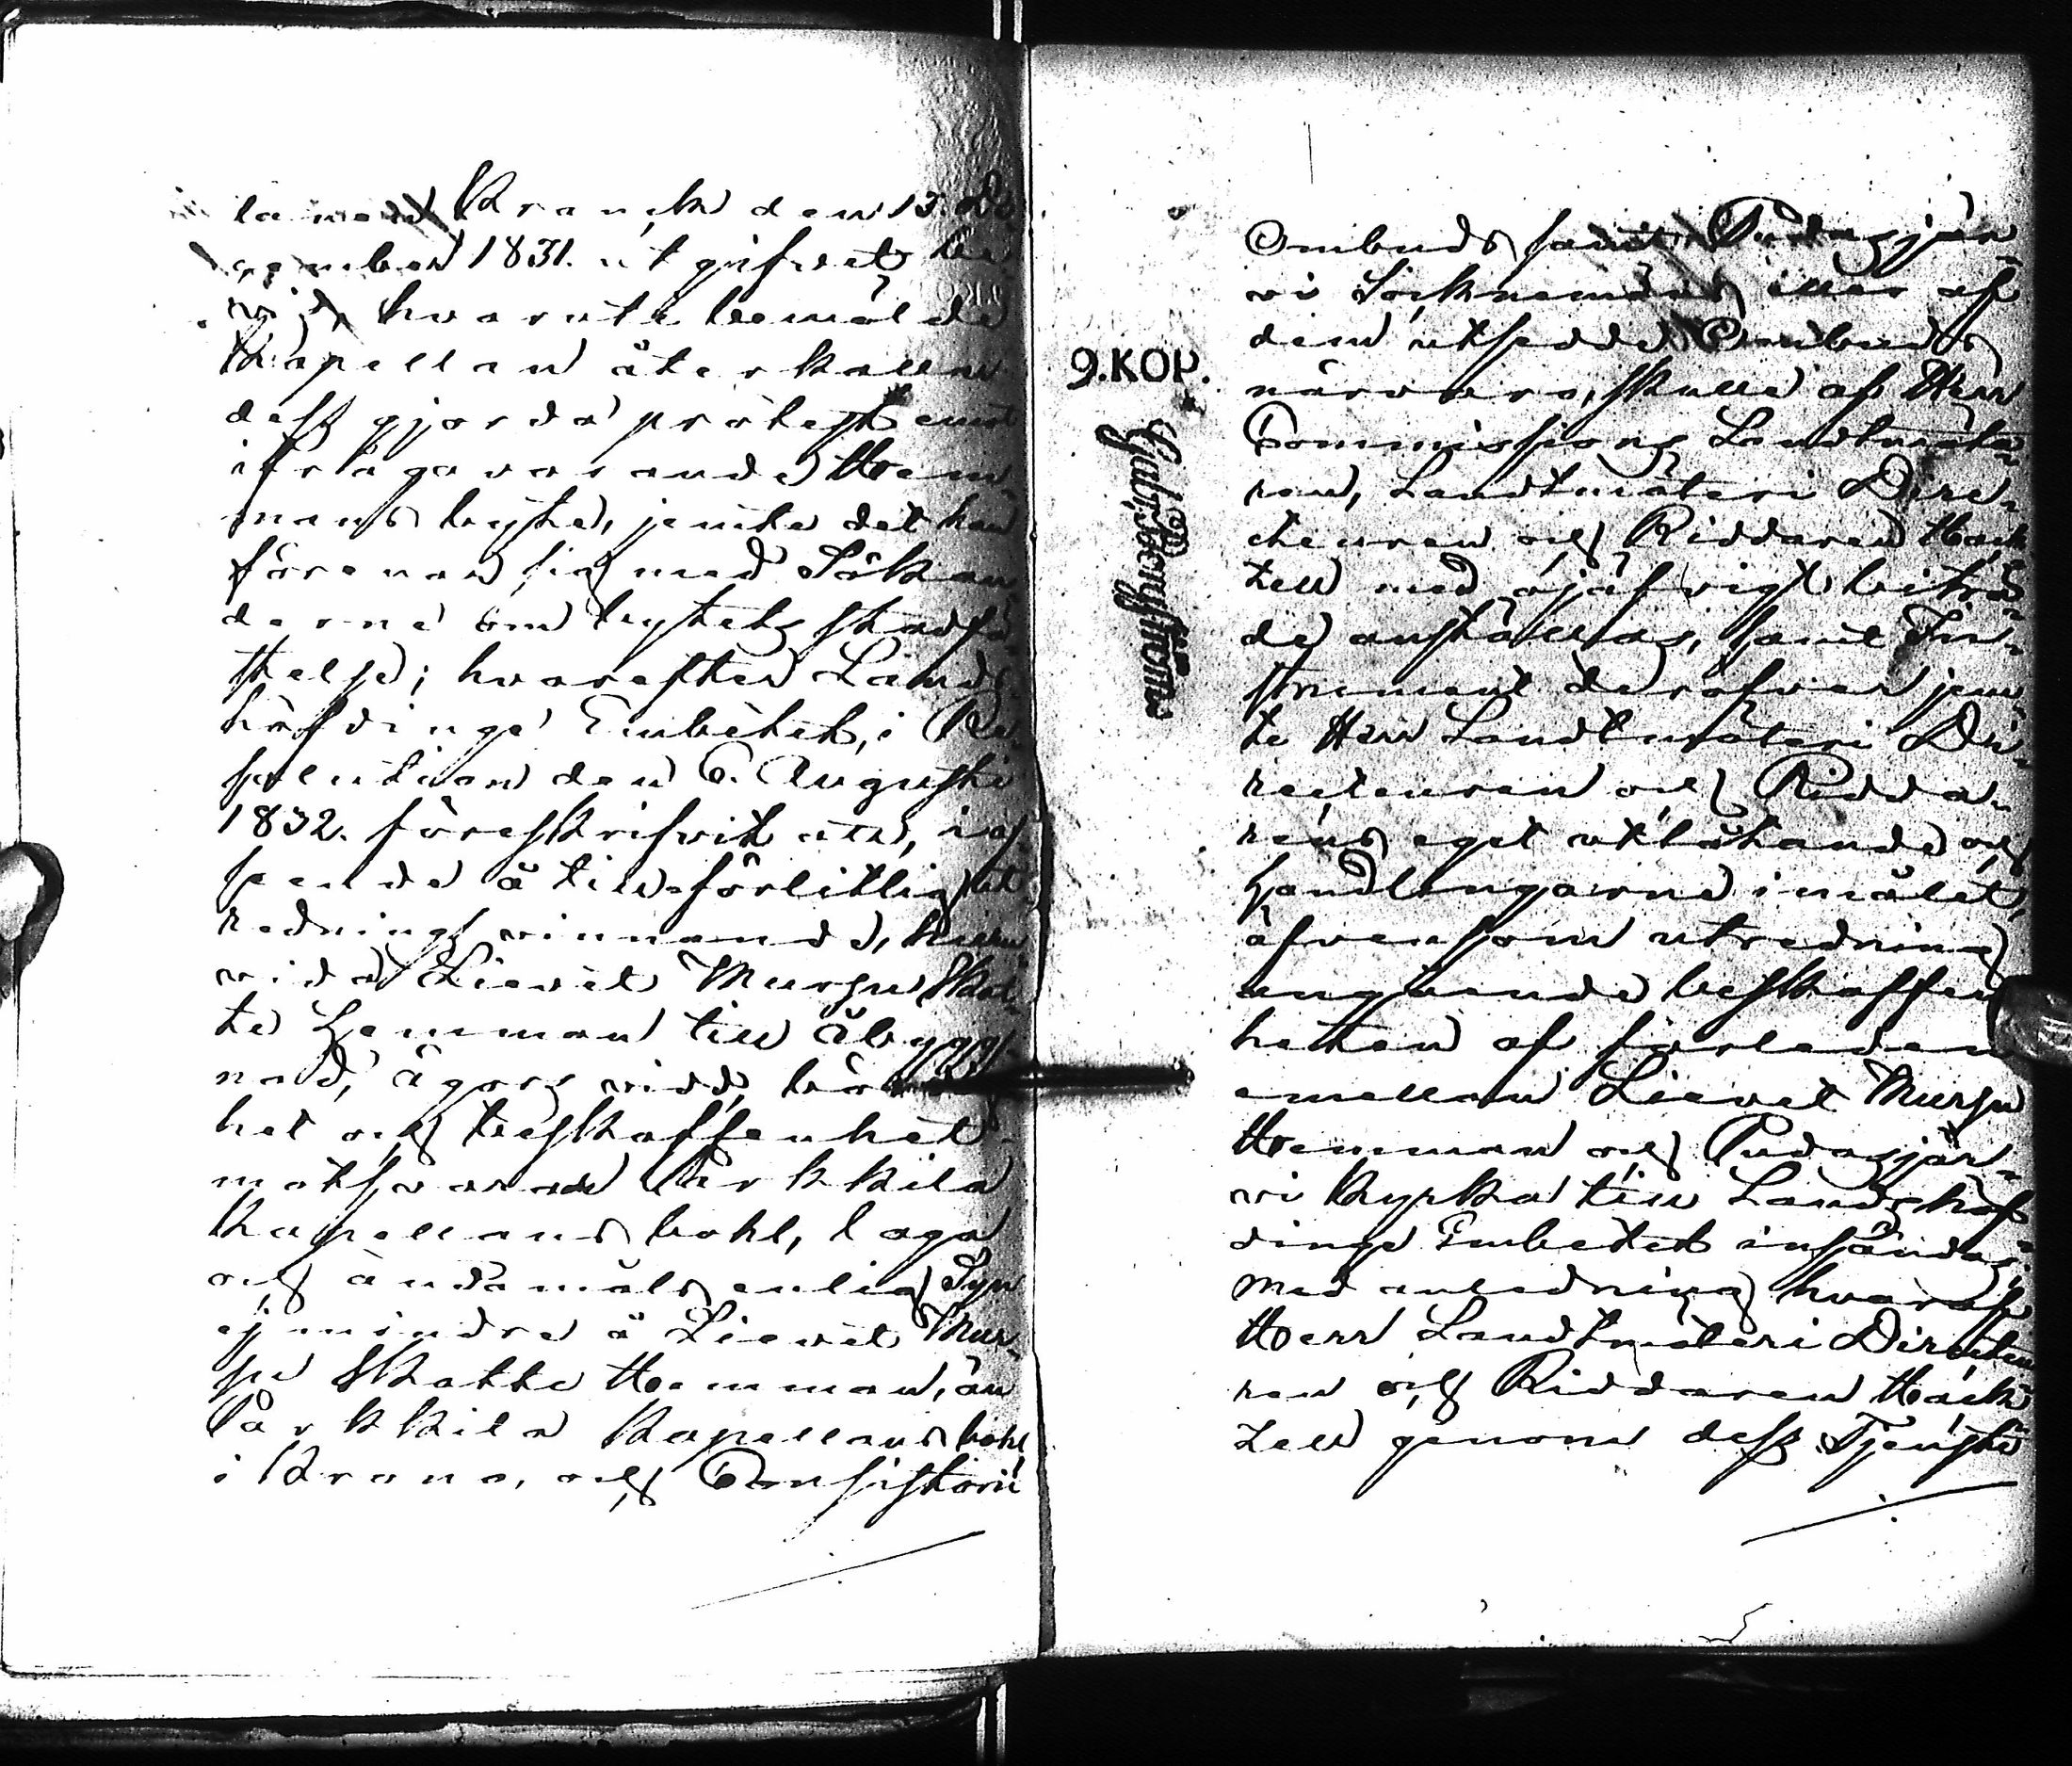 Kranck den 13. De-
cember 1831. utgifvet be-
vis, hvaruti bemälde
Kapellan återkallar
dess gjorda protest emot
ifrågavarande Hem-
mans byte, jemte det han
förenar sig med Sökan-
derne om bytets stadfä-
stelse; hvarefter Lands-
höfdinge Embetet, i Re-
solution den 6. Augusti
1832. föreskrifvit att, i af-
seende å tillförlitlig ut-
rednings vinnande, huru-
vida Lievet Mursu Skat-
te Hemman till åbygg-
nad, ägors vidd, bör-
het och beskaffenhet
motsvarar Pärkkilä
Kapellans bohl, laga
och ändamålsenlig Syn
ej mindre å Lievet Mur-
su Skatte Hemman, än
Pärkkilä Kapellans bohl
i Krono, och Consistorii
Ombuds samt Pudasjär-
vi Socknemäns eller af
dem utsedde Ombuds
närvaro, skulle af Herr
Commissions Landtmäta-
ren, Landtmäteri Dire-
cteuren och Riddaren Hack-
zell med ojäfvigt biträ-
de anställas, samt In-
strument deröfver jem-
te Herr Landtmäteri Di-
recteuren och Ridda-
rens eget utlåtande och
handlingarne i målet,
äfvensom utredning
angående beskaffen-
heten af farleden
emellan Lievet Mursu
Hemman och Pudasjär-
vi Kyrka till Landshöf-
dinge Embetet insändas;
Med anledning hvaraf
Herr Landtmäteri Directeu-
ren och Riddaren Hack-
zell genom dess Tjenste
9.KOP.